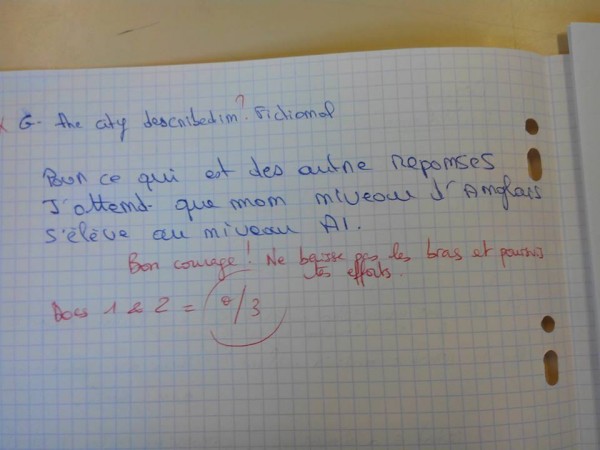 x G- the city describedim ? Fictional
Bon ce qui est des autre reponses
J'attend que mom niveau d'Anglais
s'élève au niveau A1.
Bon courage ! Ne baisse pas les bras et poursuis
tes efforts.
Docs 1 & 2 = 0/3